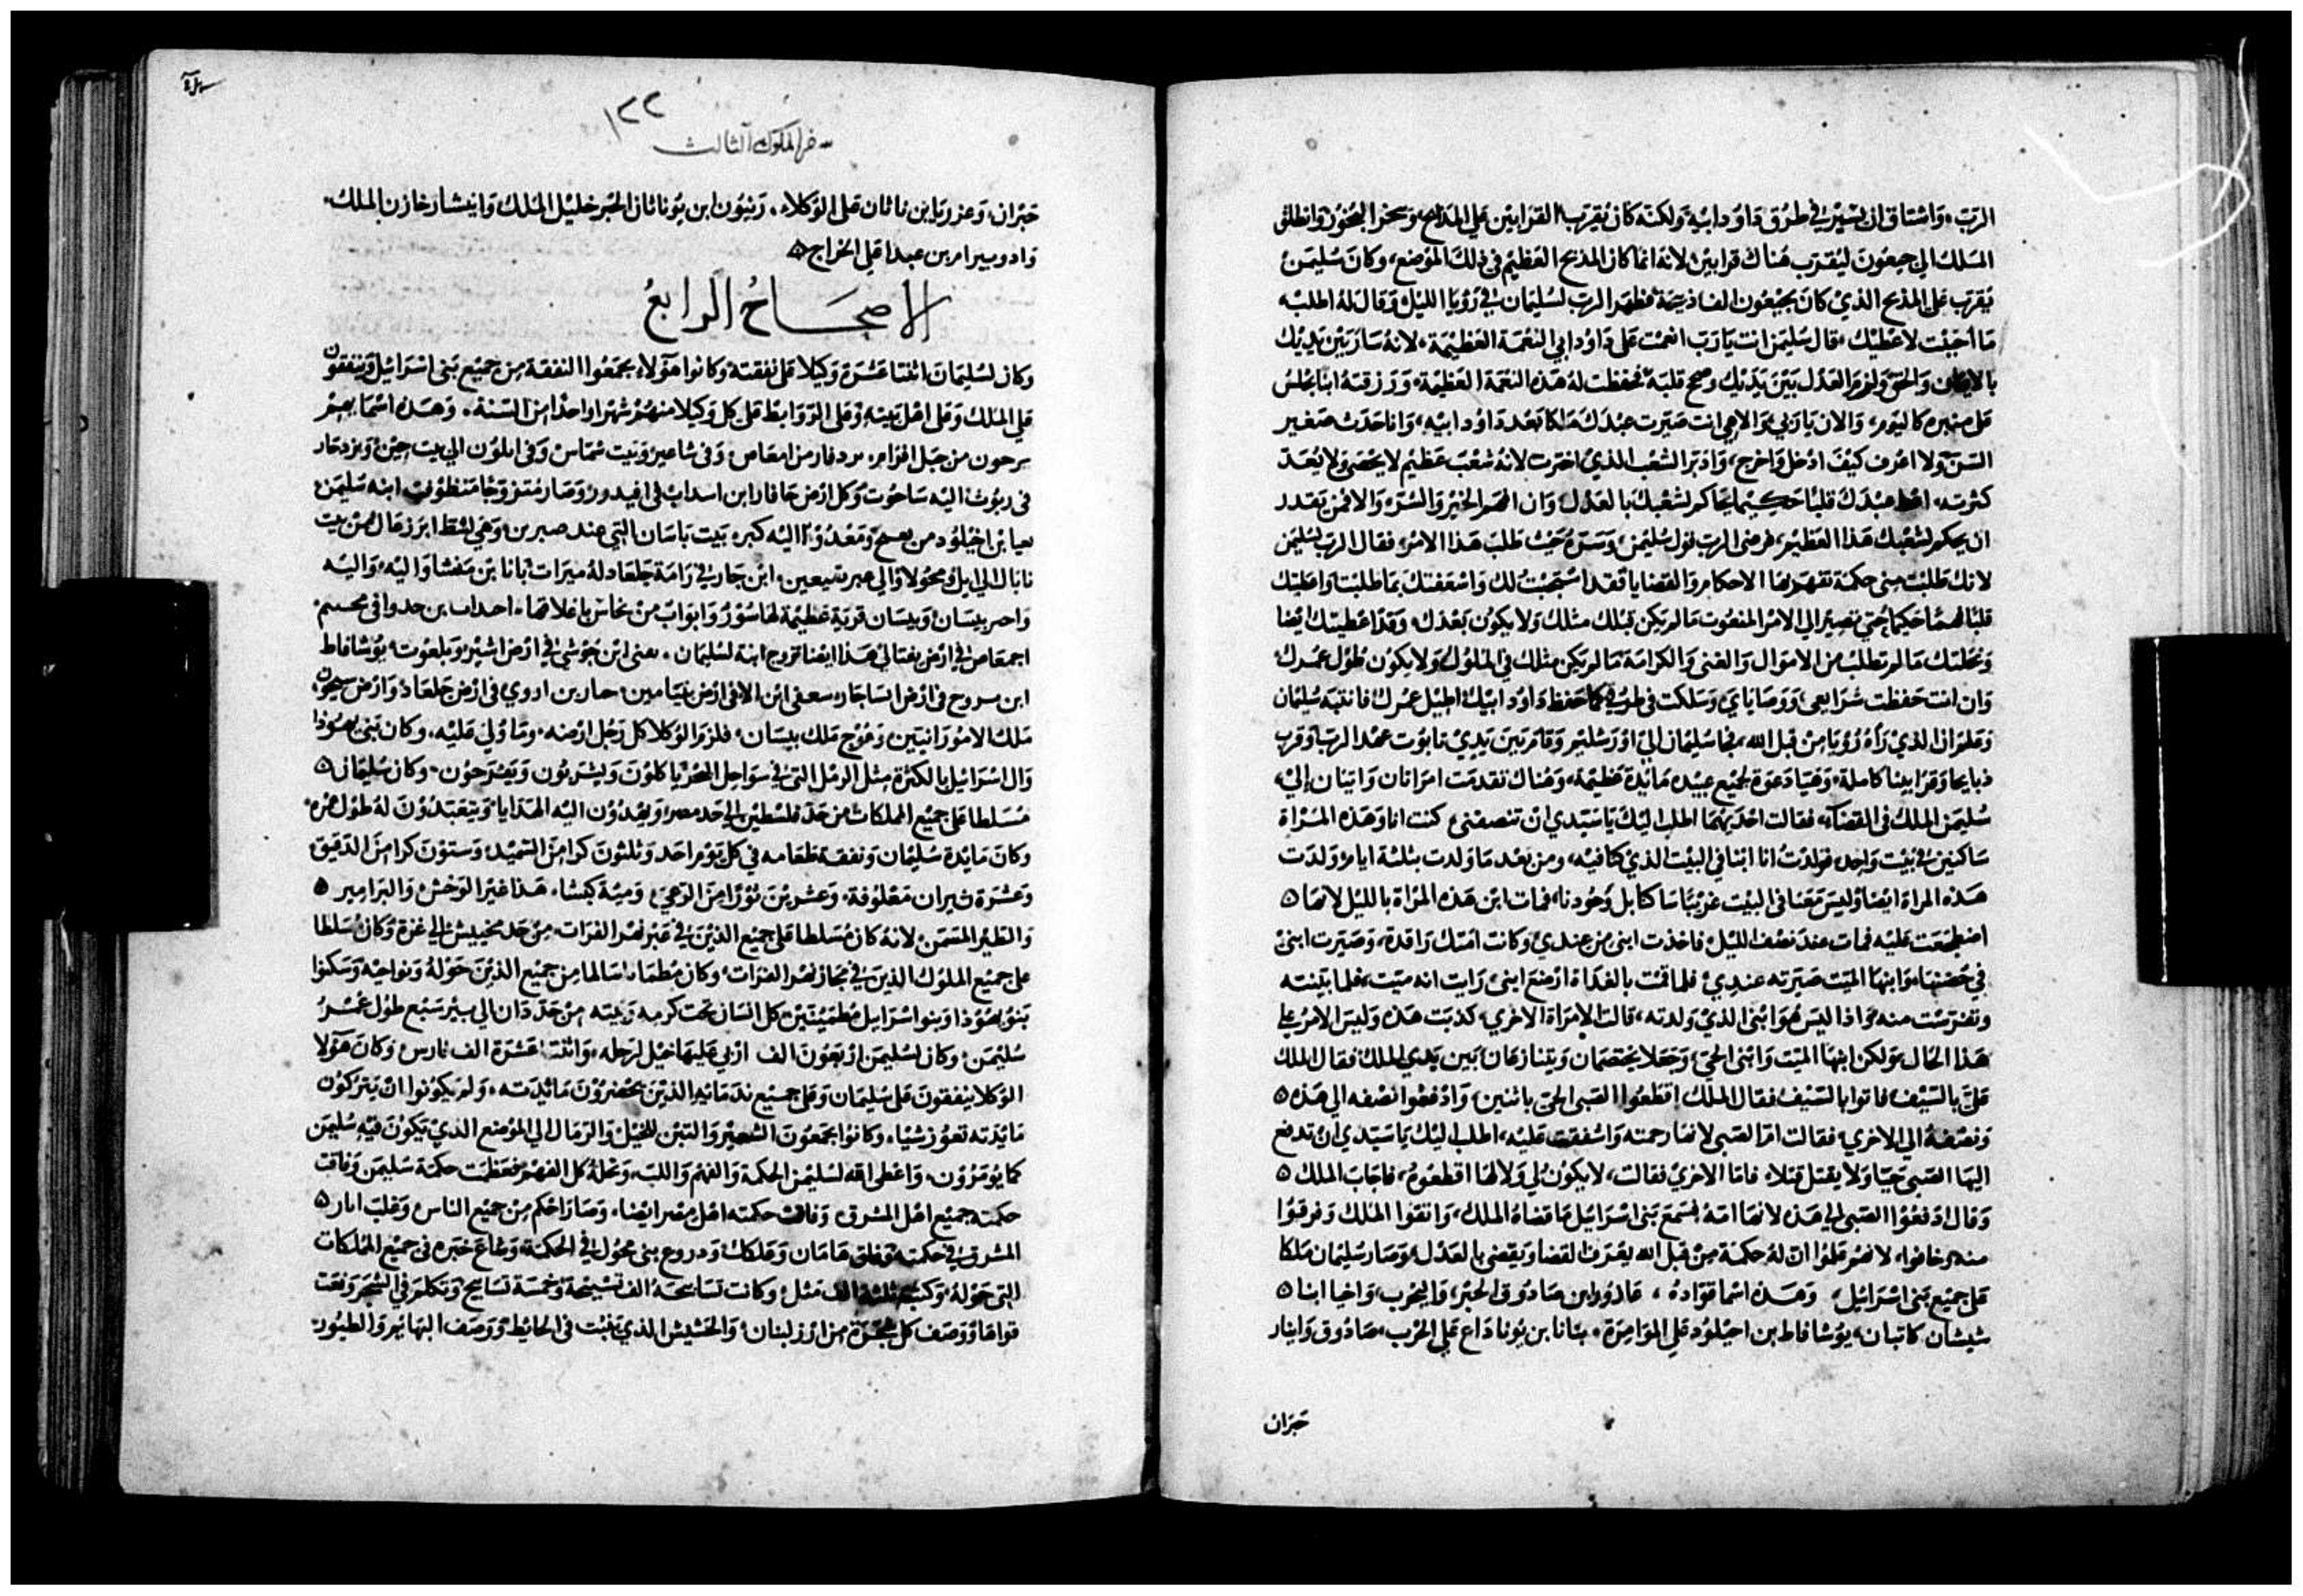 الرب، واشتاق ان يسير في طرق داود ابيه ولكنه كان يقرب القرابين على المذابح، ويبخر البخور وانطلق
الملك الى جبعون ليقرب هناك قرابين لانه انما كان المذبح العظيم في ذلك الموضع، وكان سليمن
يقرب على المذبح الذي كان بجبعون الف ذبيحة فظهر الرب لسليمان في رويا الليل وقال له اطلب
ما احببت لاعطيك، قال سليمن انت يا رب انعمت على داود ابي النعمة العظيمة، لانه سار بين يديك
بالايمان والحق ولزم العدل بين يديك وصح قلبه فحفظت له هذه النعمة العظيمة، ورزقته ابنا يجلس
على منبره كاليوم، والان يا ربي والاهي انت صيرت عبدك ملكا بعد داود ابيه، وانا حدث صغير
السن ولا اعرف كيف ادخل واخرج، وادبر الشعب الذي اخترت لانه شعب عظيم لا يحصى ولا يعد
كثرته، اعط عبدك قلبا حكيما يحاكم لشعبك بالعدل وان افهم الخير والشر، والا فمن يقدر
ان يحكم لشعبك هذا العظيم، فرضى الرب قول سليمن، وسره حيث طلب هذا الامر، فقال الرب لسليمن
لانك طلبت مني حكمة تفهم بها الاحكام والقضايا فقد استجبت لك واسعفتك بما طلبت واعطيتك
قلبا فهما حكيما حتى تصير الى الامر المنعوت ما لم يكن قبلك مثلك ولا يكون بعدك، وقد اعطيتك ايضا
ونحلتك ما لم تطلب من الاموال والغنى والكرامة ما لم يكن مثلك في الملوك ولا يكون طول عمرك
وان انت حفظت شرايعي ووصاياي وسلكت في طرقي كما حفظ داود ابيك اطيل عمرك فانتبه سليمان
وعلم ان الذي رأه رويا من قبل الله، فجا سليمان الى اورشليم وقام بين يدي تابوت عهد الرب وقرب
ذبايحا وقرابينا كاملة، وهيا دعوة لجميع عبيده مايدة عظيمة، وهناك تقدمت امراتان واتيتان الى
سليمن الملك في القضا، فقالت احديهما اطلب اليك يا سيدي ان تنصفني كنت انا وهذه المراة
ساكنين في بيت واحد، فولدت انا ابنا في البيت الذي كنا فيه، ومن بعد ما ولدت بثلثة ايام ولدت
هذه المراة ايضا وليس معنا في البيت غريبا ساكنا بل وحودنا، فمات ابن هذه المراة بالليل لانها
اضطجعت عليه فمات عند نصف الليل فاخذت ابني من عندي وكانت امتك راقدة، وصيرت ابني
في حضنها وابنها الميت صيرته عندي فلما قمت بالغداة ارضع ابني رايت انه ميت، فلما بينته
وتفرست منه واذا ليس هو ابني الذي ولدته، قالت الامراة الاخرى كذبت هذه وليس الامر على
هذا الحال ولكن ابنها الميت وابني الحي، وجعلا يختصمان ويتنازعان بين يدي الملك فقال الملك
علي بالسيف فاتوا بالسيف فقال الملك اقطعوا الصبي الحي باثنين، وادفعوا نصفه الى هذه
ونصفه الى الاخرى فقالت ام الصبي لانها رحمته واشفقت عليه، اطلب اليك يا سيدي ان تدفع
اليها الصبي حيا ولا يقتل قتلا، فاما الاخرى فقالت، لا يكون لي ولا لها اقطعوه، فاجاب الملك
وقال ادفعوا الصبي الى هذه لانها امه فسمع بني اسرائيل ما قضاه الملك، واتقوا الملك وفرقوا
منه وخافوه لانهم علموا ان له حكمة من قبل الله يعرف القضا ويقضي بالعدل، وصار سليمان ملكا
على جميع بني اسرائيل، وهذه اسما قواده، عازور ابن صادوق الحبر، واليحرب واخيا ابنا
شيشان كاتبان، يوشافاط بن احيلود على الموامرة، بنانا بن يونا داع على الحرب، صادوق وابيار
حبران
١٢٢
سفر الملوك الثالث
حبران، وعزوريا بن ناثان على الوكلاء، زنبون ابن يوناثان الحبر خليل الملك وانيشار خازن الملك،
وادوبيرام بن عبدا على الخراج
الاصحاح الرابع
وكان لسليمان اثنتا عشرة وكيلا على نفقته وكانوا هولاء يجمعوا النفقة من جميع بني اسرائيل وينفقون
على الملك وعلى اهل بيته وعلى الروابط على كل وكيلا منهم شهرا واحدا من السنة، وهذه اسمايهم
من جبل افرام، وفي شاعير وبيت شماس وفي ايلون الى بيت حين
اليه ساحوت وكل ارض حافار ابن وصار متزوجا ابنه سليمن
ابن اخيلود من اليه كبره بيت باسان التي عند
ابن جار في رامة جلعاد له ميراث بانا بن منشا واليه
بيسان وبيسان قرية عظيمة لها سور وابواب من نحاس باغلاقها، احداب بن حدوا في محسم
اجمعاص في ارض نفتالي هذا ايضا تزوج ابنة لسليمان، بعني ابن حوشي في ارض اشير وبلعوت، يوشافاط
ابن سروح في ارض ايساجار، سعفي ابن الا في ارض بنيامين، حار بن اروي في ارض جلعاد، وارض سيحون
ملك الامورانيين، وعوج ملك بيسان، فلزم الوكلا كل رجل ارضه، وما ولي عليه، وكان بني يهوذا
وال اسرائيل بالكثرة مثل الرمل التي في سواحل البحر ياكلون ويشربون ويفرحون، وكان سليمان
مسلطا على جميع المملكات من حد فلسطين الى حد مصر، ويهدون اليه الهدايا ويتعبدون له طول عمره،
وكان مايدة سليمان ونفقة طعامه في كل يوم احد وثلثون كرا من السميد، وستون كرا من الدقيق
وعشرة ثيران معلوفة، وعشرين ثورا من الرعي، ومية كبشا، هذا غير الوحش والبرامير
والطير المسمن، لانه كان مسلطا على جميع الذين في عبر نهر الفرات، من حد مخييش الى غزة وكان مسلطا
على جميع الملوك الذين في مجاز نهر الفرات، وكان مطمانا سالما من جميع الذين حوله ونواحيه وسكنوا
بنو يهوذا وبنو اسرايل مطمينين، كل انسان تحت كرمه وتينته من حد دان الى بير سبع طول عمر
سليمن، وكان لسليمن اربعون الف اري عليها خيل لرجله، واثنتا عشرة الف فارس، وكان هولا
الوكلا ينفقون على سليمان وعلى جميع ندمائه الذين يحضرون مائدته، ولم يكونوا ان يتركون
مايدته تعوز شيا، وكانوا يجمعون الشعير والتبن للخيل والرمال الى الموضع الذي يكون فيه سليمن
كما يومرون، واعطى الله لسليمن الحكمة والفهم واللب، ونحله كل الفهم فعظمت حكمة سليمن وفاقت
حكمته جميع اهل المشرق، وفاقت حكمته اهل مصر ايضا، وصار احكم من جميع الناس وغلب اثار
المشرق في حكمته وفاق هامان وفلكاث ودروع بني محول في الحكمة، وشاع خبره في جميع المملكات
التي حوله وكتب ثلثة الف مثل، وكانت تسابيحه الف تسبيحة وخمسة تسابيح وتكلم في الشجر ونعت
قواها ووصف كل شجرة من ارز لبنان، والحشيش الذي نبت في الحايط ووصف البهايم والطيور